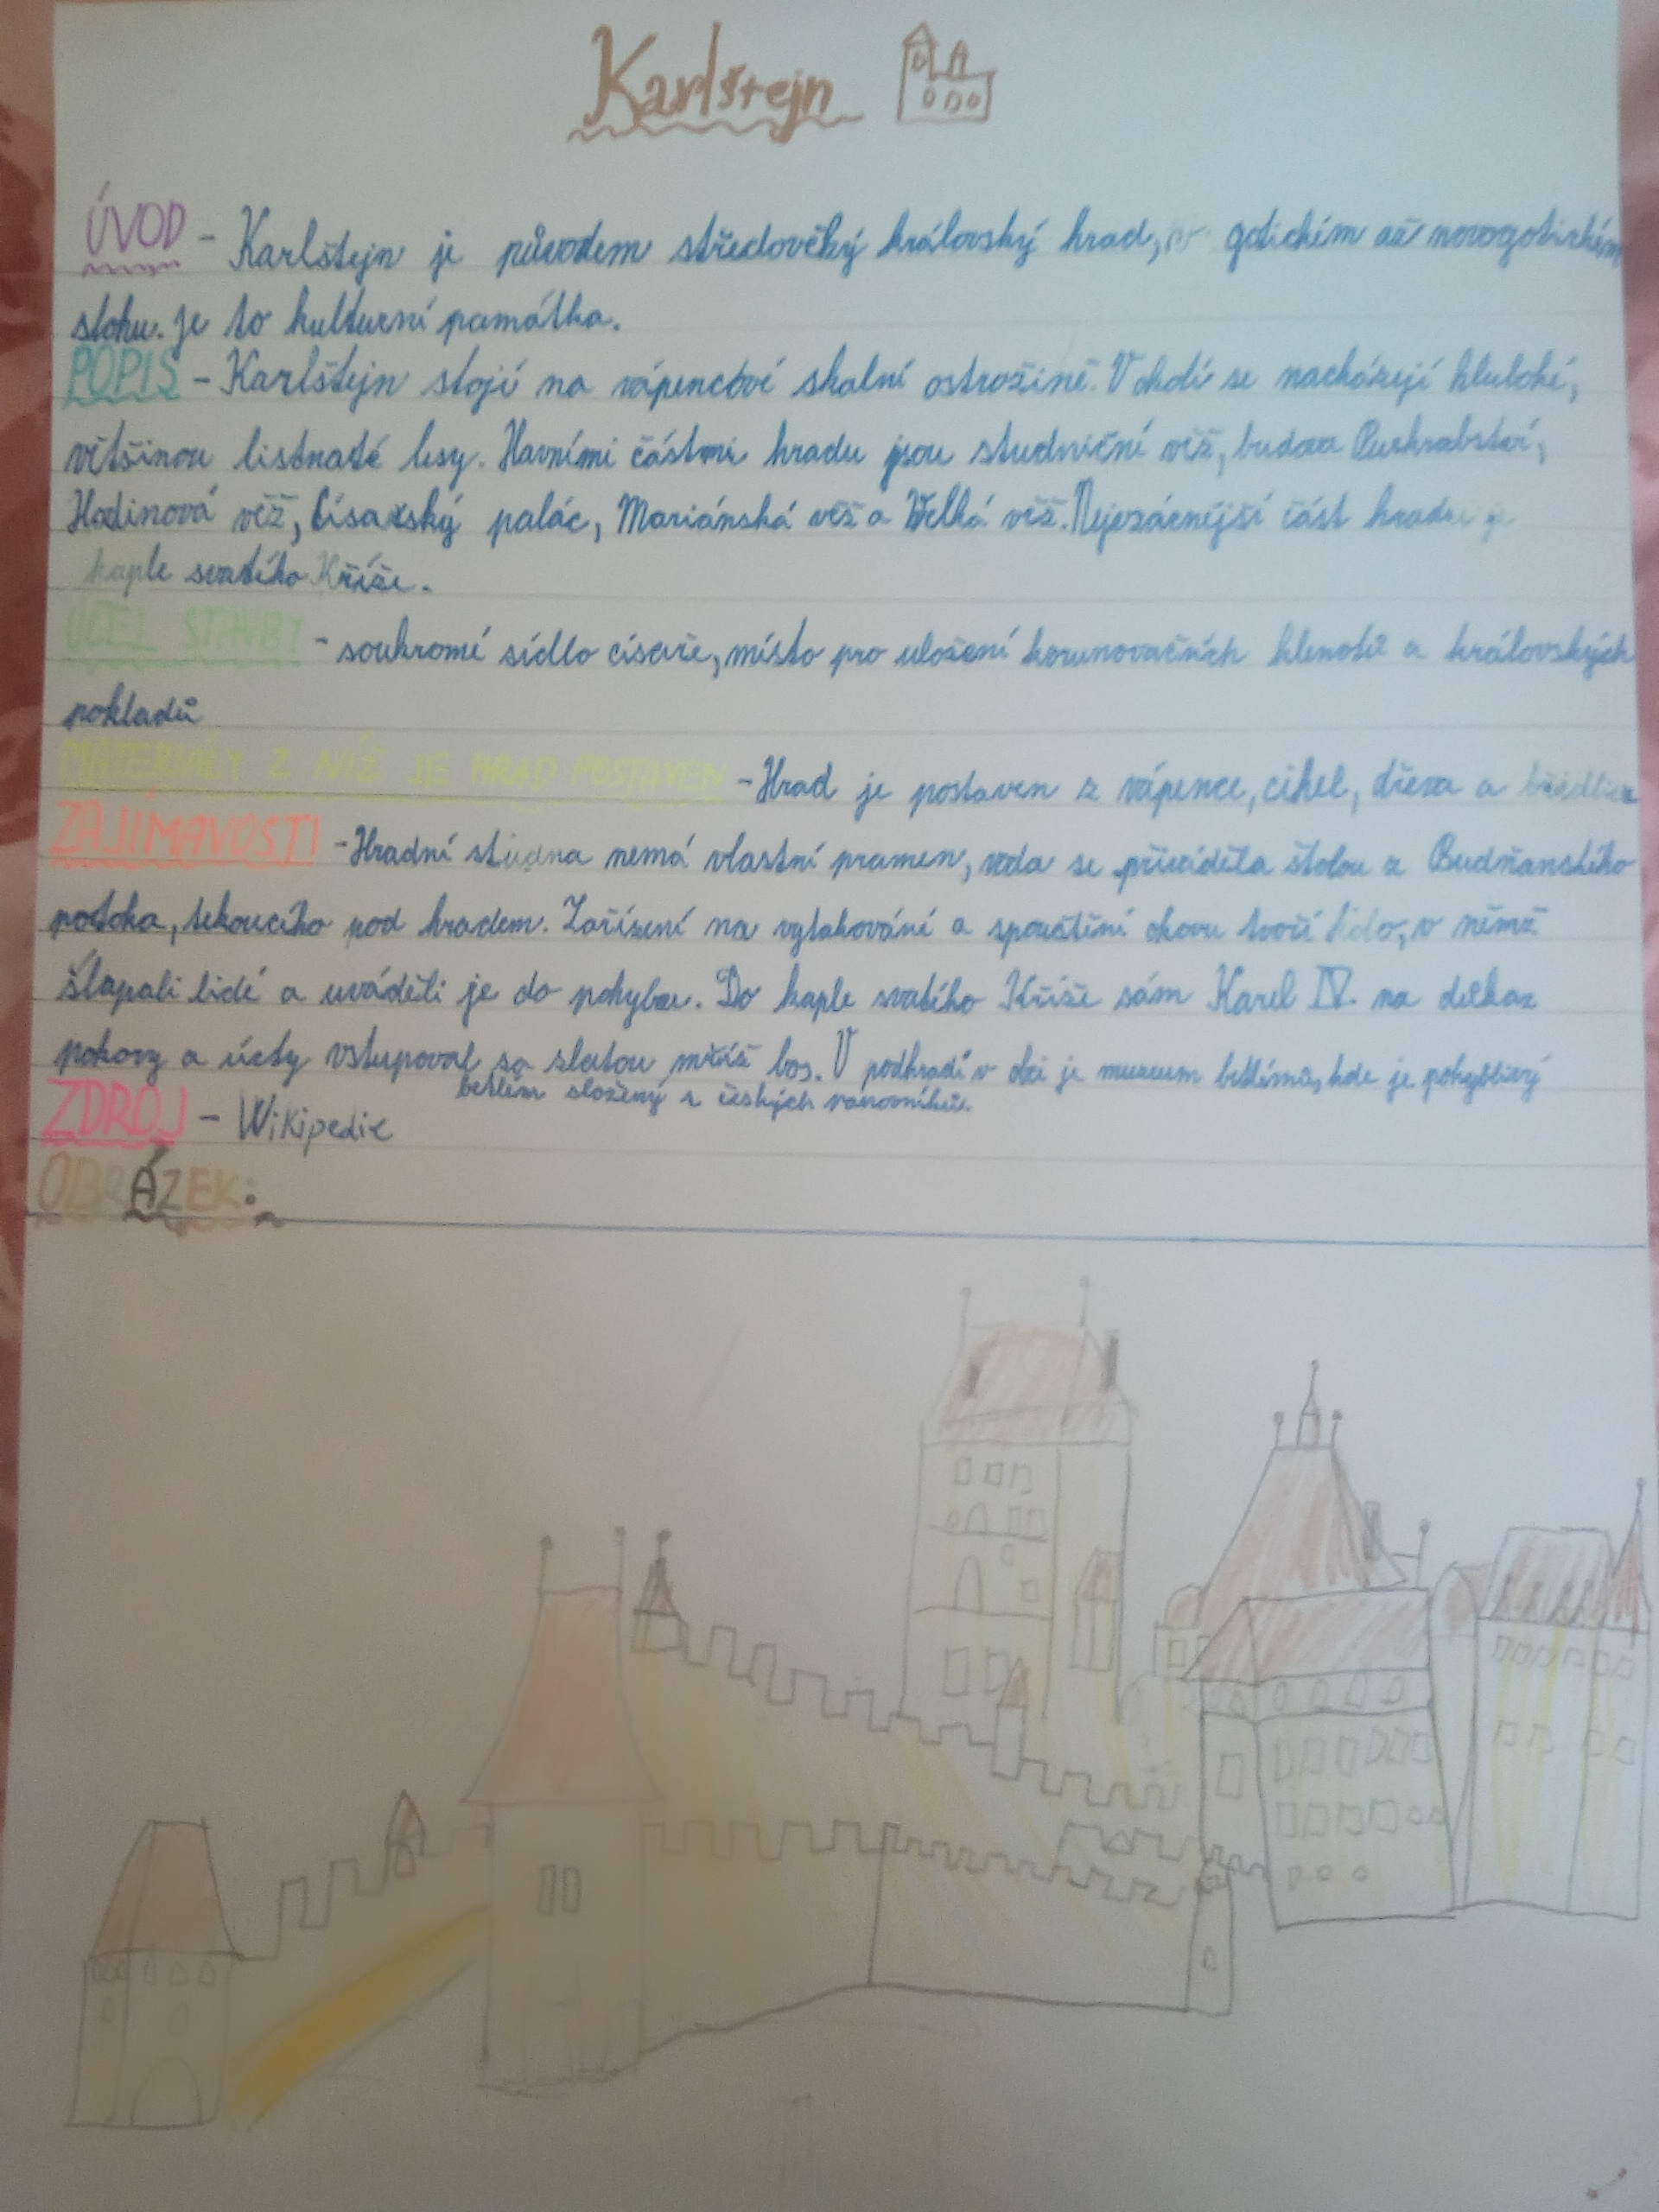 Karlštejn
ÚVOD - Karlštejn je původem středověký královský hrad, v gotickém až novogotickém
slohu. Je to kulturní památka.
POPIS - Karlštejn stojí na vápencové skalní ostrožině. V okolí se nacházejí hluboké,
většinou listnaté lesy. Hlavními částmi hradu jsou studniční věž, budova Purkrabství,
Hodinová věž, Císařský palác, Mariánská věž a Velká věž. Nejvzácnější část hradu je
kaple svatého Kříže.
ÚČEL STAVBY - soukromé sídlo císaře, místo pro uložení korunovačních klenotů a královských
pokladů
MATERIÁLY Z NIŽ JE HRAD POSTAVEN - Hrad je postaven z vápence, cihel, dřeva a břidlice
ZAJÍMAVOSTI - Hradní studna nemá vlastní pramen, voda se přiváděla štolou z Budňanského
potoka, tekoucího pod hradem. Zařízení na vytahování a spouštění okovu tvoří kolo, v němž
šlapali lidé a uváděli je do pohybu. Do kaple svatého Kříže sám Karel IV. na důkaz
pokory a úcty vstupoval za zlatou mříž bos. V podhradí v obci je muzeum betlémů, kde je pohyblivý
betlém složený z českých panovníků.
ZDROJ - Wikipedie
OBRÁZEK: